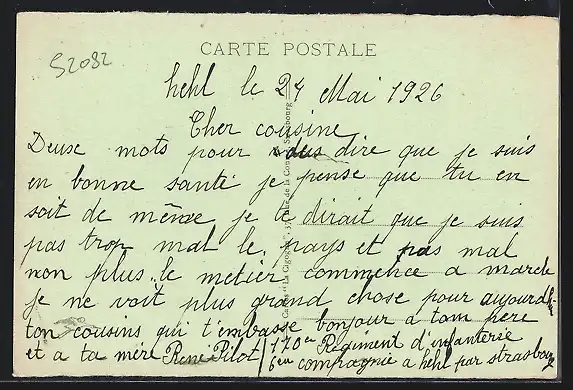 CARTE POSTALE
52082
Kehl le 24 Mai 1926
Cher cousine
Deuse mots pour dire que je suis
en bonne santé je pense que tu en
soit de même je te dirait que je suis
pas trop mal le pays et pas mal
non plus. le metier commence a marche
je ne voit plus grand chose pour aujourd'hui
ton cousins qui t'embasse bonjour a tom pere
et a ta mère René Pilot
170em Regiment d'infanterie
6em compagnie a Kehl par strasbourg
"La Cigogne", 37, Rue de la Course, Strasbourg